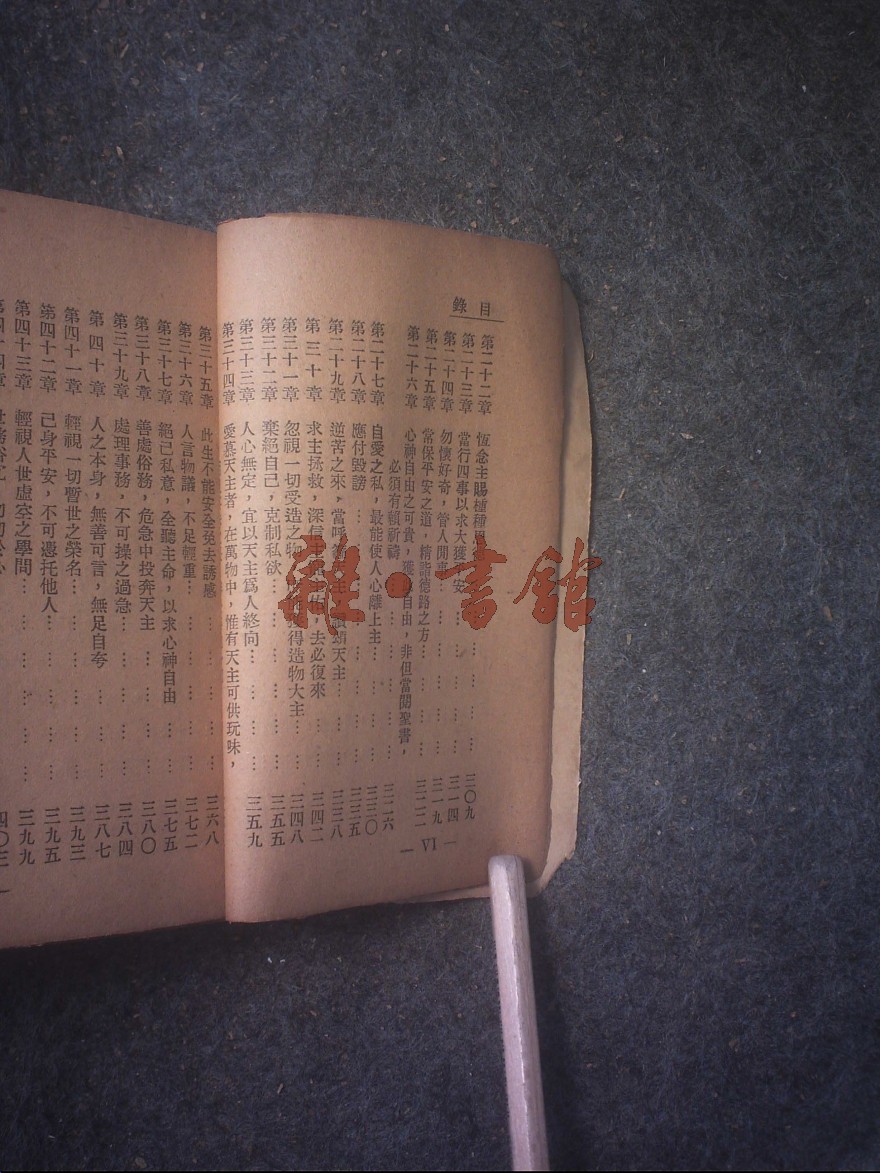 目錄
第二十二章 恆念主賜種種恩 三〇九
第二十三章 當行四事以求大獲 安 三一四
第二十四章 勿懷好奇，管人閒事 三一九
第二十五章 常保平安之道，精詣德路之方 三二二
第二十六章 心神自由之可貴，獲 自由，非但當閱聖書，
必須有賴祈禱 三二六
第二十七章 自愛之私，最能使人心離上主 三三〇
第二十八章 應付毀謗 三三五
第二十九章 逆苦之來，當呼 頌天主 三三八
第三十章 求主拯救，深信 佑，去必復來 三四二
第三十一章 忽視一切受造之物 得造物大主 三四八
第三十二章 棄絕自己，克制私欲 三五五
第三十三章 人心無定，宜以天主爲人終向 三五九
第三十四章 愛慕天主者，在萬物中，惟有天主可供玩味，
— VI —
第三十五章 此生不能安全免去誘感 三六八
第三十六章 人言物議，不足輕重 三七二
第三十七章 絕已私意，全聽主命，以求心神自由 三七五
第三十八章 善處俗務，危急中投奔天主 三八〇
第三十九章 處理事務，不可操之過急 三八四
第四十章 人之本身，無善可言，無足自夸 三八七
第四十一章 輕視一切暫世之榮名 三九三
第四十二章 己身平安，不可憑托他人 三九五
第四十三章 輕視人世虛空之學問 三九九
雜·書館